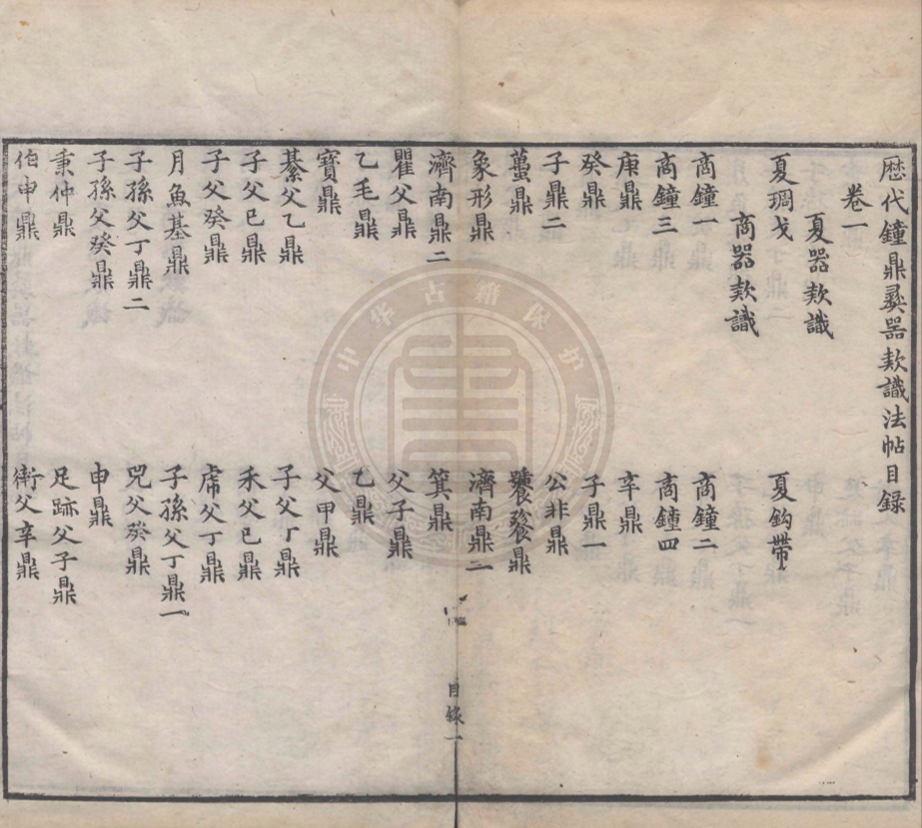 歷代鐘鼎彛器欵識法帖目録
卷一
夏器欵識
夏琱戈 夏鈎帶
商器欵識
商鐘一 商鐘二
商鐘三 商鐘四
庚鼎 辛鼎
癸鼎 子鼎一
子鼎二 公非鼎
蠆鼎 饕餮鼎
象形鼎 濟南鼎一
濟南鼎二 箕鼎
瞿父鼎 父子鼎
乙毛鼎 乙鼎
寶鼎 父甲鼎
綦父乙鼎 子父丁鼎
子父已鼎 禾父已鼎
子父癸鼎 虎父丁鼎
月魚基鼎 子孫父丁鼎一
子孫父丁鼎二 兕父癸鼎
子孫父癸鼎 申鼎
秉仲鼎 足跡父子鼎
伯申鼎 衛父辛鼎
目録一
中华古籍保护